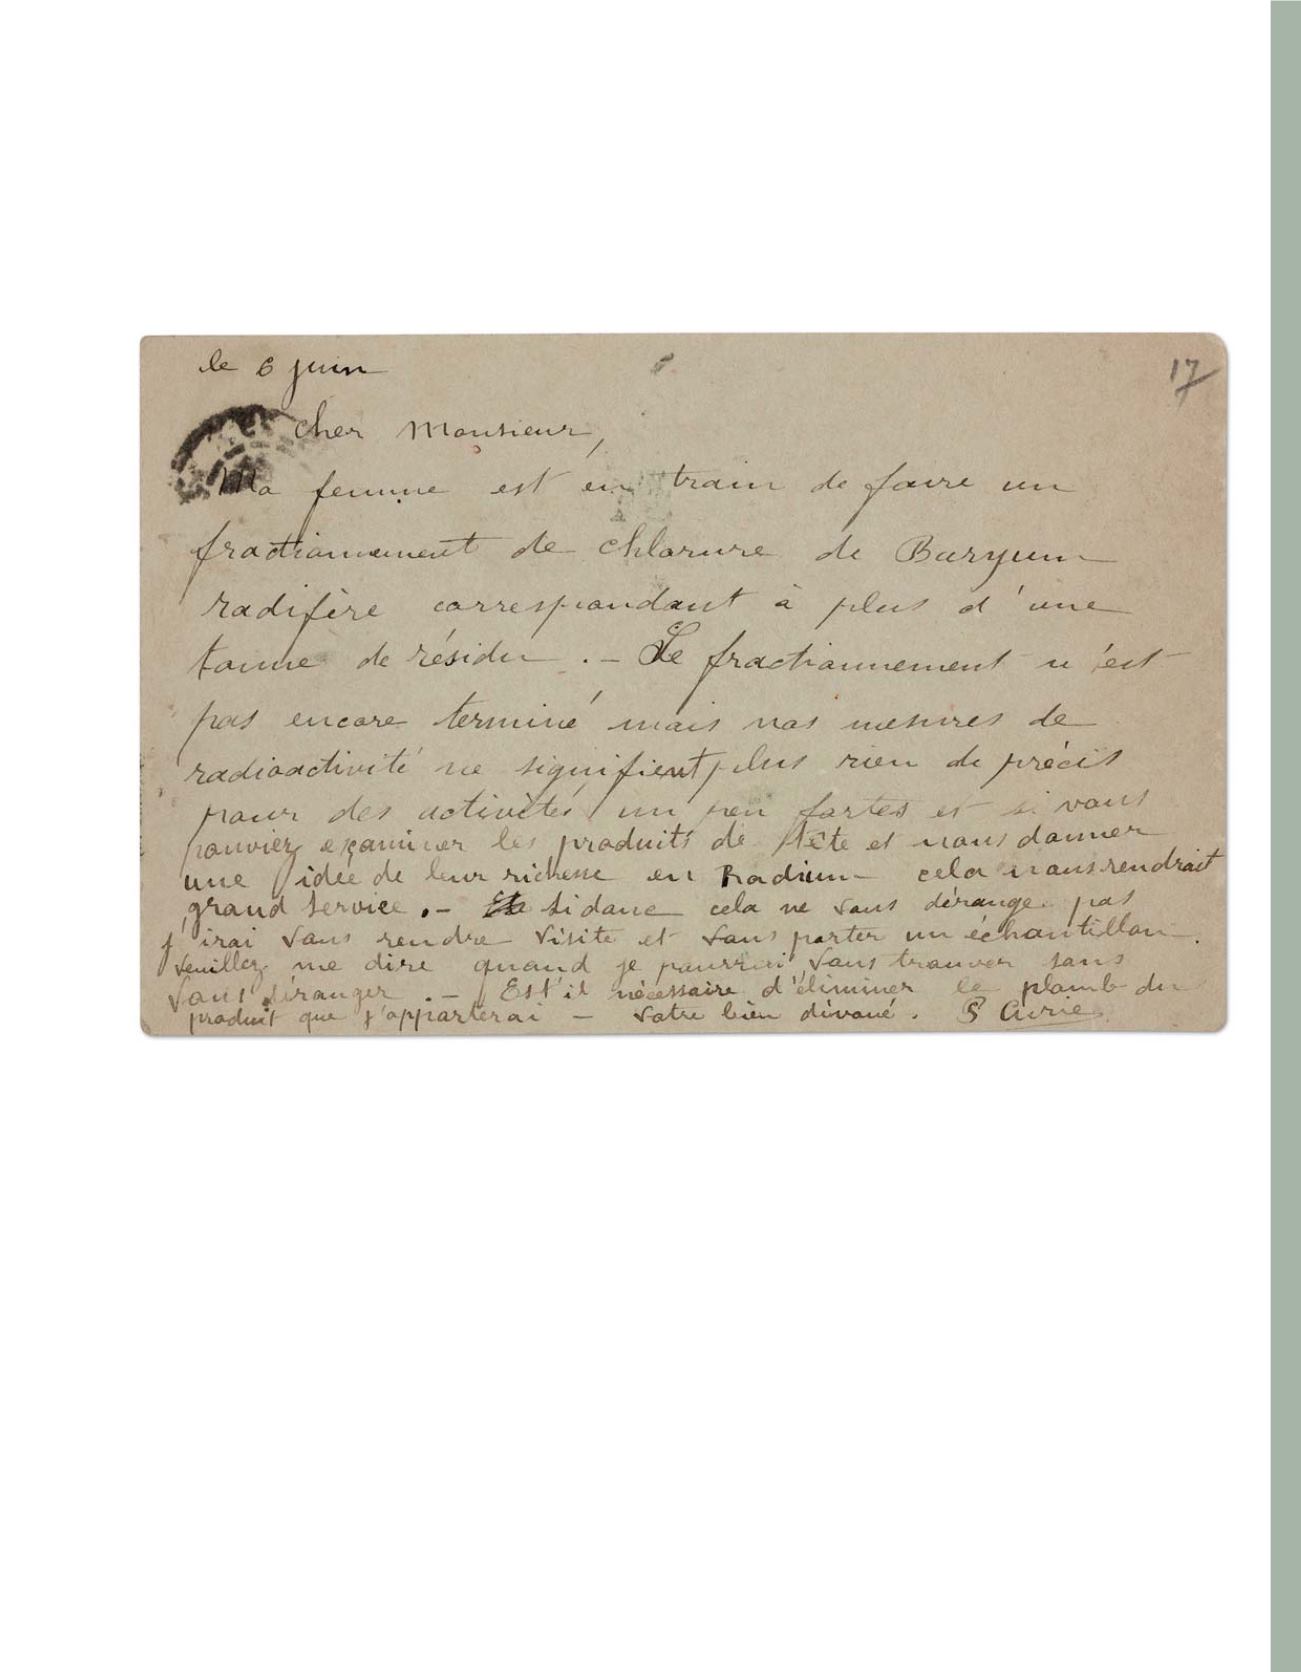 le 6 juin
17
Cher Monsieur,
Ma femme est en train de faire un
fractionnement de chlorure de Baryum
radifère correspondant à plus d'une
tonne de résidu . – Le fractionnement n'est
pas encore terminé mais nos mesures de
radioactivité ne signifient plus rien de précis
pour des activités un peu fortes et si vous
pouviez examiner les produits de tête et nous donner
une idée de leur richesse en Radium cela nous rendrait
grand service . – si donc cela ne vous dérange pas
j'irai vous rendre visite et vous porter un échantillon .
Veuillez me dire quand je pourrai vous trouver sans
vous déranger . – Est'il nécessaire d'éliminer le plomb du
produit que j'apporterai – Votre bien dévoué . P Curie